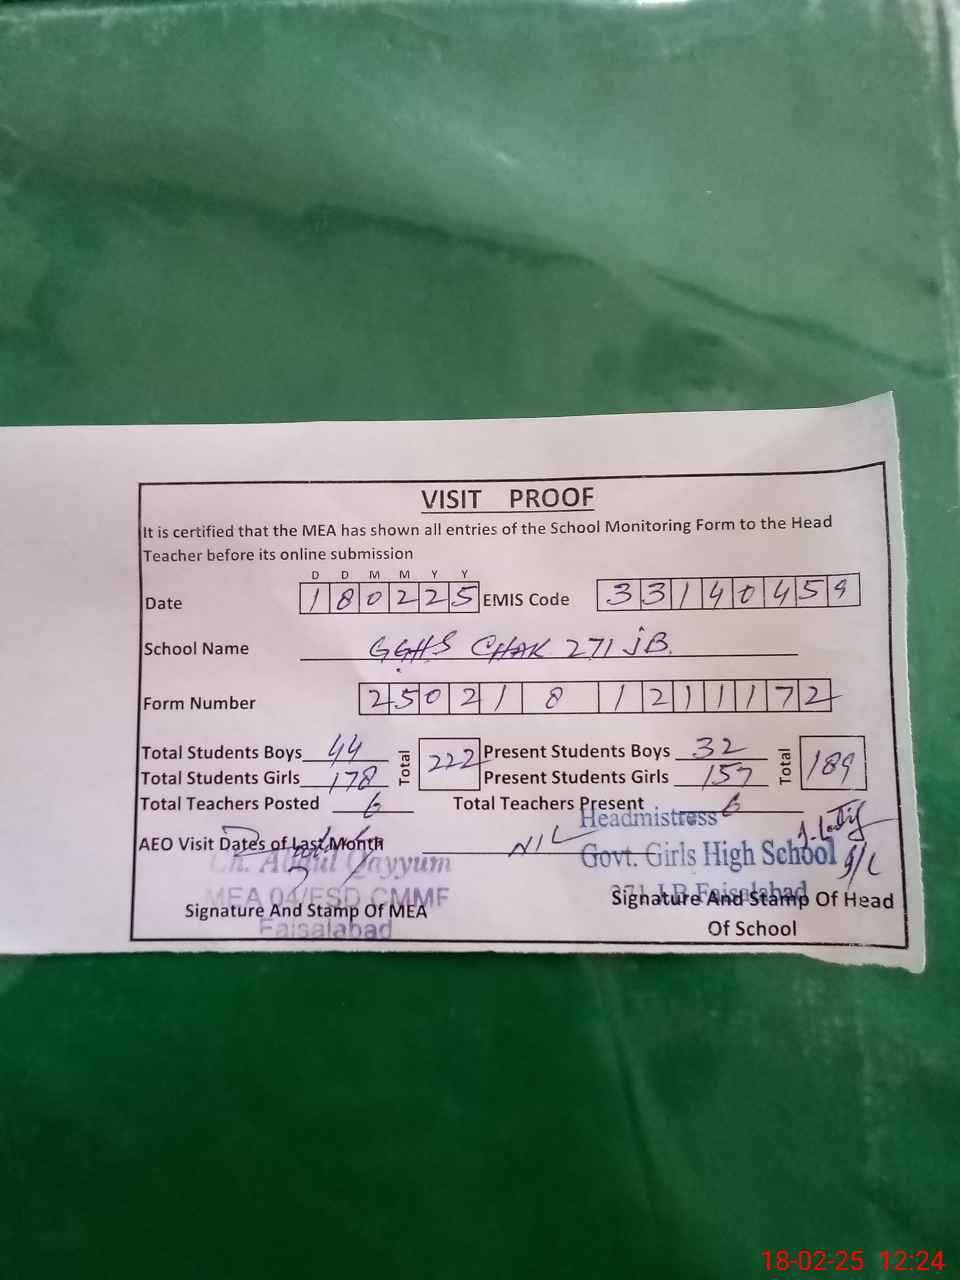 VISIT PROOF
It is certified that the MEA has shown all entries of the School Monitoring Form to the Head
Teacher before its online submission
D D M M Y Y
Date 180225 EMIS Code 33140459
School Name GGHS CHAK 271 JB.
Form Number 2502181211172
Total Students Boys 44 Total 222 Present Students Boys 32 Total 189
Total Students Girls 178 Present Students Girls 157
Total Teachers Posted 6 Total Teachers Present 6
Headmistress
AEO Visit Dates of Last Month NIL
Ch. Abdul Qayyum Govt. Girls High School
MEA 04/FSD CMMF 271 J.B Faisalabad
Signature And Stamp Of MEA Signature And Stamp Of Head
Faisalabad Of School
18-02-25 12:24